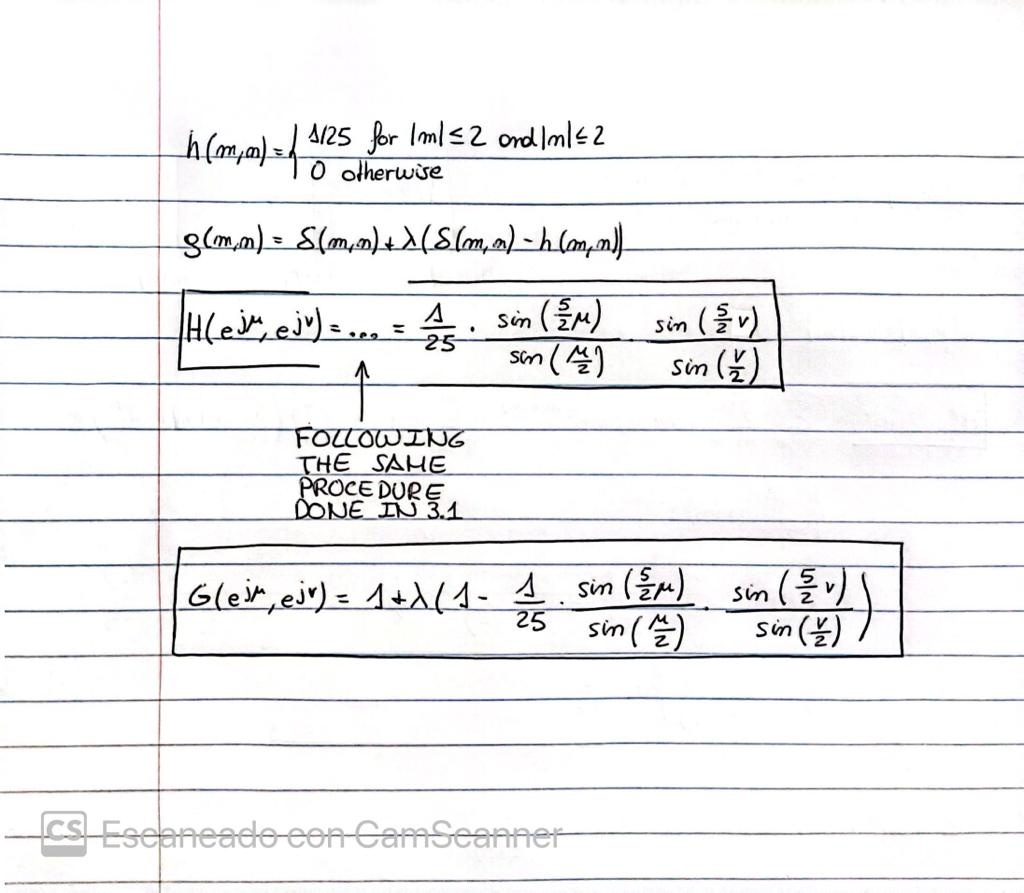 h(m,n) = { 1/25 for |m| ≤ 2 and |n| ≤ 2
0 otherwise
g(m,n) = δ(m,n) + λ(δ(m,n) - h(m,n))
H(e^{jμ}, e^{jν}) = ... = 1/25 · sin(5/2 μ)/sin(μ/2) · sin(5/2 ν)/sin(ν/2)
FOLLOWING
THE SAME
PROCEDURE
DONE IN 3.1
G(e^{jμ}, e^{jν}) = 1 + λ(1 - 1/25 · sin(5/2 μ)/sin(μ/2) · sin(5/2 ν)/sin(ν/2))
CS Escaneado con CamScanner